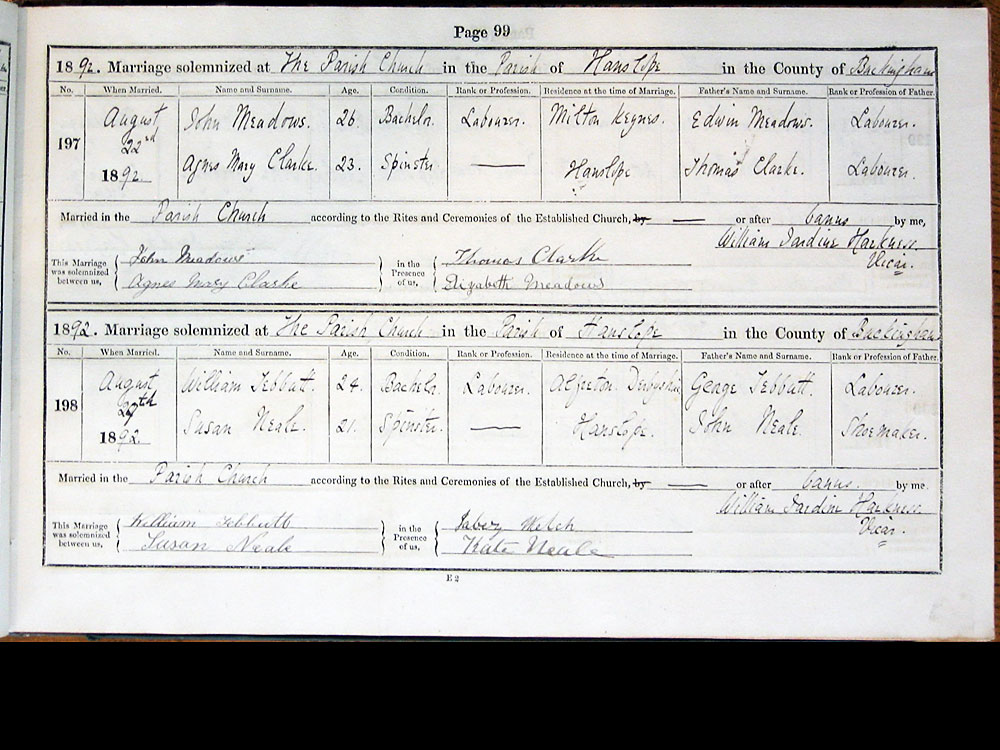 Page 99
1892. Marriage solemnized at The Parish Church in the Parish of Hanslope in the County of Buckingham
No. When Married. Name and Surname. Age. Condition. Rank or Profession. Residence at the time of Marriage. Father's Name and Surname. Rank or Profession of Father.
August John Meadows. 26. Bachelor. Labourer. Milton Keynes. Edwin Meadows. Labourer.
197 22nd
1892. Agnes Mary Clarke. 23. Spinster — Hanslope Thomas Clarke. Labourer.
Married in the Parish Church according to the Rites and Ceremonies of the Established Church, by — or after banns by me,
William Jardine Harkness.
Vicar.
This Marriage was solemnized between us, John Meadows in the Presence of us, Thomas Clarke
Agnes Mary Clarke Elizabeth Meadows
1892. Marriage solemnized at The Parish Church in the Parish of Hanslope in the County of Buckingham
No. When Married. Name and Surname. Age. Condition. Rank or Profession. Residence at the time of Marriage. Father's Name and Surname. Rank or Profession of Father.
August William Tebbutt. 24. Bachelor Labourer. Alfreton. Derbyshire George Tebbutt. Labourer.
198 27th
1892. Susan Neale. 21. Spinster. — Hanslope. John Neale. Shoemaker.
Married in the Parish Church according to the Rites and Ceremonies of the Established Church, by — or after banns. by me.
William Jardine Harkness.
Vicar.
This Marriage was solemnized between us, William Tebbutt in the Presence of us, Jabez Welch
Susan Neale Kate Neale
E 2